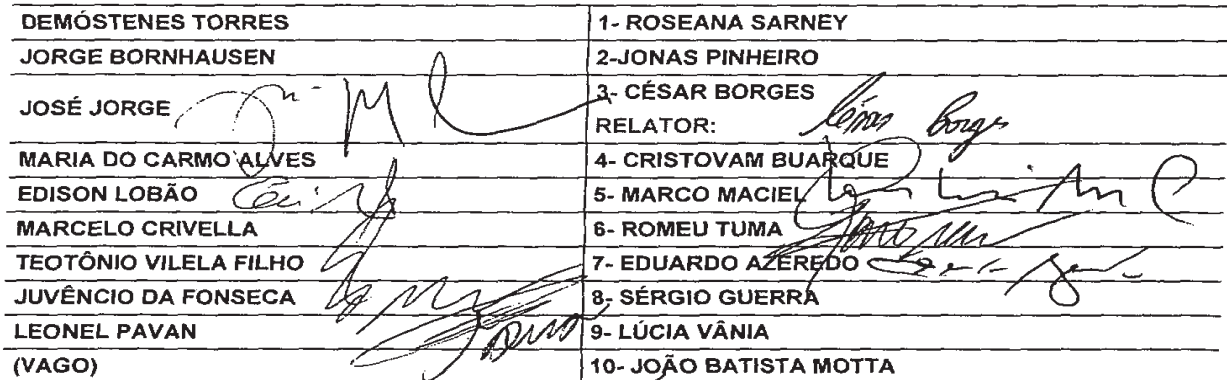 DEMÓSTENES TORRES
1- ROSEANA SARNEY
JORGE BORNHAUSEN
2-JONAS PINHEIRO
JOSÉ JORGE
3- CÉSAR BORGES
RELATOR: César Borges
MARIA DO CARMO ALVES
4- CRISTOVAM BUARQUE
EDISON LOBÃO
5- MARCO MACIEL
MARCELO CRIVELLA
6- ROMEU TUMA
TEOTÔNIO VILELA FILHO
7- EDUARDO AZEREDO
JUVÊNCIO DA FONSECA
8- SÉRGIO GUERRA
LEONEL PAVAN
9- LÚCIA VÂNIA
(VAGO)
10- JOÃO BATISTA MOTTA